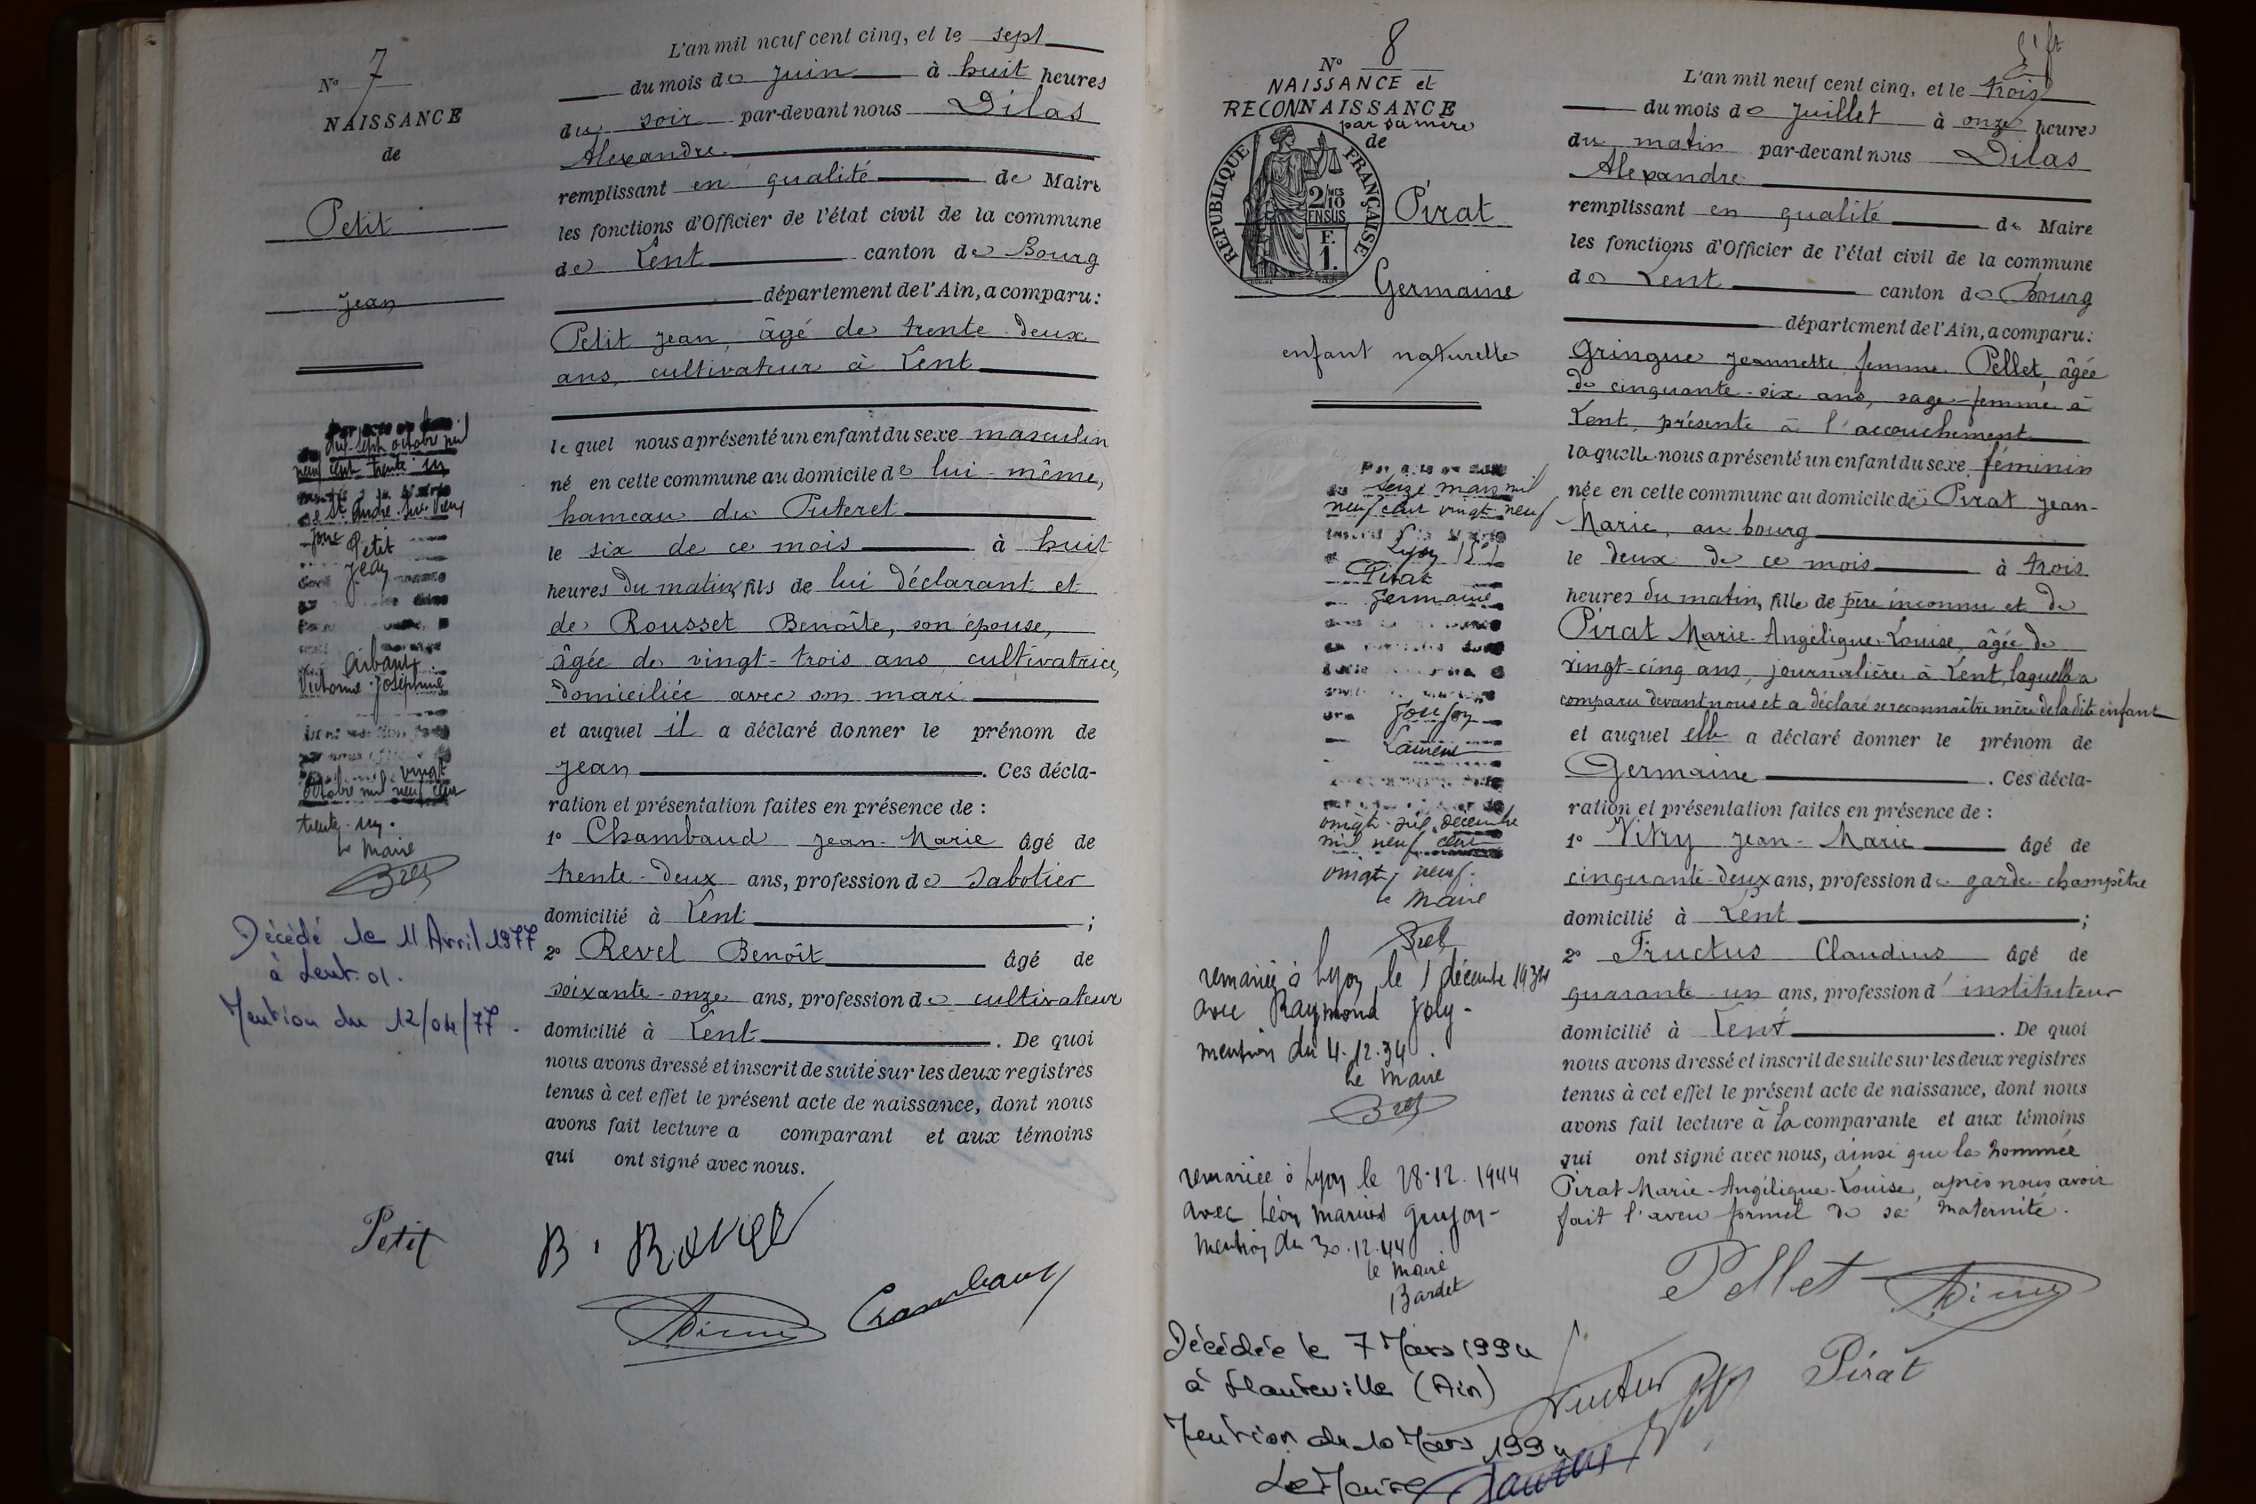 N° 7
NAISSANCE
de
Petit
Jean
dix-sept octobre mil
neuf cent trente-un
de St André-sur-Vieux
Jonc Petit
Jean
Victorine Joséphine
vingt
octobre mil neuf cent
trente-un.
Le Maire
Décédé le 11 Avril 1977
à Lent. 01.
Mention du 12/04/77.
L'an mil neuf cent cinq, et le sept
du mois de Juin à huit heures
du soir par-devant nous Dilas
Alexandre
remplissant en qualité de Maire
les fonctions d'Officier de l'état civil de la commune
de Lent canton de Bourg
département de l'Ain, a comparu:
Petit Jean, âgé de trente-deux
ans, cultivateur à Lent
le quel nous a présenté un enfant du sexe masculin
né en cette commune au domicile de lui-même,
hameau du Puteret
le six de ce mois à huit
heures du matin, fils de lui déclarant et
de Rousset Benoîte, son épouse,
âgée de vingt-trois ans, cultivatrice,
domiciliée avec son mari
et auquel il a déclaré donner le prénom de
Jean. Ces décla-
ration et présentation faites en présence de:
1° Chambaud Jean-Marie âgé de
trente-deux ans, profession de sabotier
domicilié à Lent;
2° Revel Benoît âgé de
soixante-onze ans, profession de cultivateur
domicilié à Lent. De quoi
nous avons dressé et inscrit de suite sur les deux registres
tenus à cet effet le présent acte de naissance, dont nous
avons fait lecture a comparant et aux témoins
qui ont signé avec nous.
Petit
B. Revel
Chambaud
N° 8
NAISSANCE et
RECONNAISSANCE
par sa mère
de
REPUBLIQUE FRANÇAISE
2/10
EN SUS
F.
1.
Pirat
Germaine
enfant naturelle
seize mars mil
neuf cent vingt-neuf
Lyon
Pirat
Germaine
Laurent
vingt-six décembre
mil neuf cent
vingt-neuf.
Le Maire
remariée à Lyon le 1 décembre 1934
avec Raymond Joly-
mention du 4.12.34.
Le Maire
remariée à Lyon le 28.12.1944
avec Léon Marius Guyon-
mention du 30.12.44
le maire
Bardet
Décédée le 7 Mars 1994
à Hauteville (Ain)
Mention du 10 Mars 1994
Le Maire
L'an mil neuf cent cinq, et le trois
du mois de Juillet à onze heures
du matin par-devant nous Dilas
Alexandre
remplissant en qualité de Maire
les fonctions d'Officier de l'état civil de la commune
de Lent canton de Bourg
département de l'Ain, a comparu:
Gringue Jeannette femme Pellet, âgée
de cinquante-six ans, sage-femme à
Lent, présente à l'accouchement
laquelle nous a présenté un enfant du sexe féminin
née en cette commune au domicile de Pirat Jean-
Marie, au bourg
le deux de ce mois à trois
heures du matin, fille de père inconnu et de
Pirat Marie-Angélique-Louise, âgée de
vingt-cinq ans, journalière à Lent, laquelle a
comparu devant nous et a déclaré se reconnaître mère de ladite enfant
et auquel elle a déclaré donner le prénom de
Germaine. Ces décla-
ration et présentation faites en présence de:
1° Vitry Jean-Marie âgé de
cinquante-deux ans, profession de garde-champêtre
domicilié à Lent;
2° Fructus Claudius âgé de
quarante-un ans, profession d'instituteur
domicilié à Lent. De quoi
nous avons dressé et inscrit de suite sur les deux registres
tenus à cet effet le présent acte de naissance, dont nous
avons fait lecture à la comparante et aux témoins
qui ont signé avec nous, ainsi que la nommée
Pirat Marie-Angélique-Louise, après nous avoir
fait l'aveu formel de sa maternité.
Pellet
Fructus
Pirat